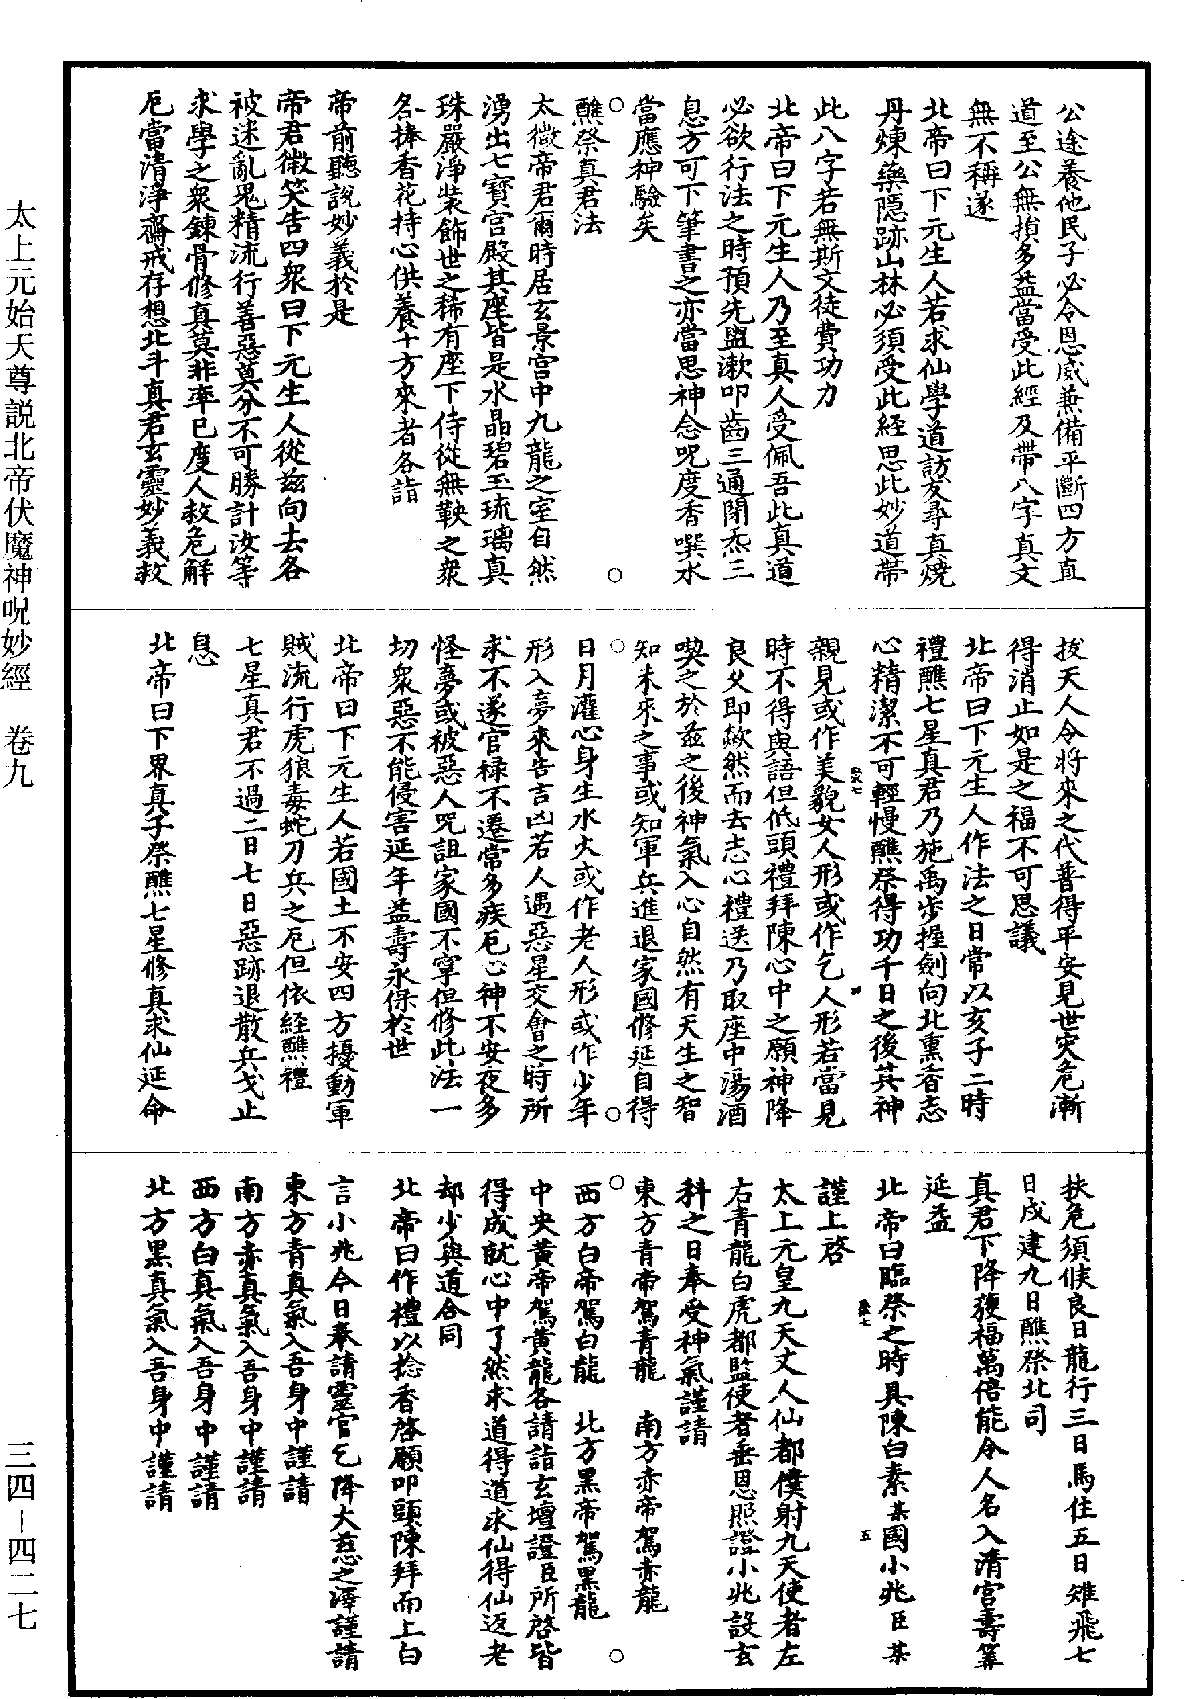 公途養他民子必令恩威兼備平斷四方直
道至公無損多益當受此經及帶八字真文
無不稱遂
北帝曰下元生人若求仙學道訪友尋真燒
丹煉藥隱跡山林必須受此經思此妙道帶
此八字若無斯文徒費功力
北帝曰下元生人乃至真人受佩吾此真道
必欲行法之時預先盥漱叩齒三通閉炁三
息方可下筆書之亦當思神念呪度香噀水
當應神驗矣
醮祭真君法
太微帝君爾時居玄景宮中九龍之室自然
湧出七寶宮殿其座皆是水晶碧玉琉璃真
珠嚴淨裝飾世之稀有座下侍從無鞅之衆
各捧香花持心供養十方來者各詣
帝前聽說妙義於是
帝君微笑告四衆曰下元生人從兹向去各
被迷亂鬼精流行善惡莫分不可勝計汝等
求學之衆鍊骨修真莫非率已度人救危解
厄當清淨齋戒存想北斗真君玄靈妙義救
拔天人令將來之代普得平安見世灾危漸
得消止如是之福不可思議
北帝曰下元生人作法之日常以亥子二時
禮醮七星真君乃施禹步握劍向北熏香志
心精潔不可輕慢醮祭得功千日之後其神
親見或作美貌女人形或作乞人形若當見
時不得與語但低頭禮拜陳心中之願神降
良久即歘然而去志心禮送乃取座中湯酒
喫之於兹之後神氣入心自然有天生之智
知未來之事或知軍兵進退家國修延自得
日月灌心身生水火或作老人形或作少年
形入夢來告吉凶若人遇惡星交會之時所
求不遂官禄不遷常多疾厄心神不安夜多
怪夢或被惡人呪詛家國不寧但修此法一
切衆惡不能侵害延年益壽永保於世
北帝曰下元生人若國土不安四方擾動軍
賊流行虎狼毒蛇刀兵之厄但依經醮禮
七星真君不過二日七日惡跡退散兵戈止
息
北帝曰下界真子祭醮七星修真求仙延命
扶危須候良日龍行三日馬住五日雉飛七
日戍建九日醮祭北司
真君下降獲福萬倍能令人名入清宮壽筭
延益
北帝曰臨祭之時具陳白素某國小兆臣某
謹上啓
太上元皇九天丈人仙都僕射九天使者左
右青龍白虎都監使者垂恩照證小兆設玄
科之日奉受神氣謹請
東方青帝駕青龍 南方赤帝駕赤龍
西方白帝駕白龍 北方黑帝駕黑龍
中央黄帝駕黄龍各請詣玄壇證臣所啓皆
得成就心中了然求道得道求仙得仙返老
却少與道合同
北帝曰作禮以捻香啓願叩頭陳拜而上白
言小兆今日奉請靈官乞降大慈之澤謹請
東方青真氣入吾身中謹請
南方赤真氣入吾身中謹請
西方白真氣入吾身中謹請
北方黑真氣入吾身中謹請
太上元始天尊説北帝伏魔神呪妙經 卷九
三四－四二七